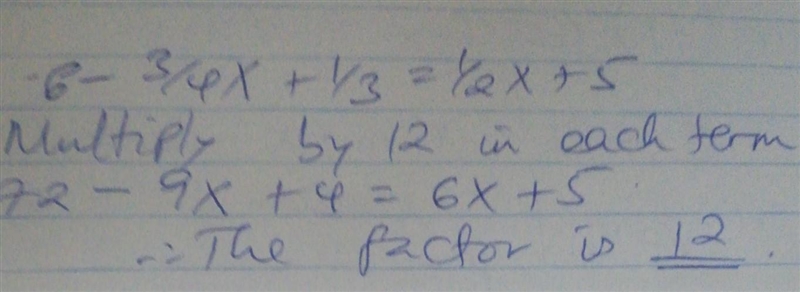 6 - 3/4x + 1/3 = 1/2x + 5
Multiply by 12 in each term
72 - 9x + 4 = 6x + 5
∴ The factor is 12.